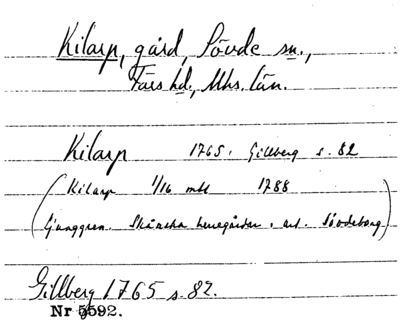 Kilarp, gård, Sövde sn.,
Färs hd., Mhs. län.
Kilarp 1765. Gillberg s. 82
(Kilarp 1/16 mtl 1788
Ljunggren. Skånska herregårdar. art. Sövdeborg)
Gillberg 1765 s. 82.
Nr 5592.